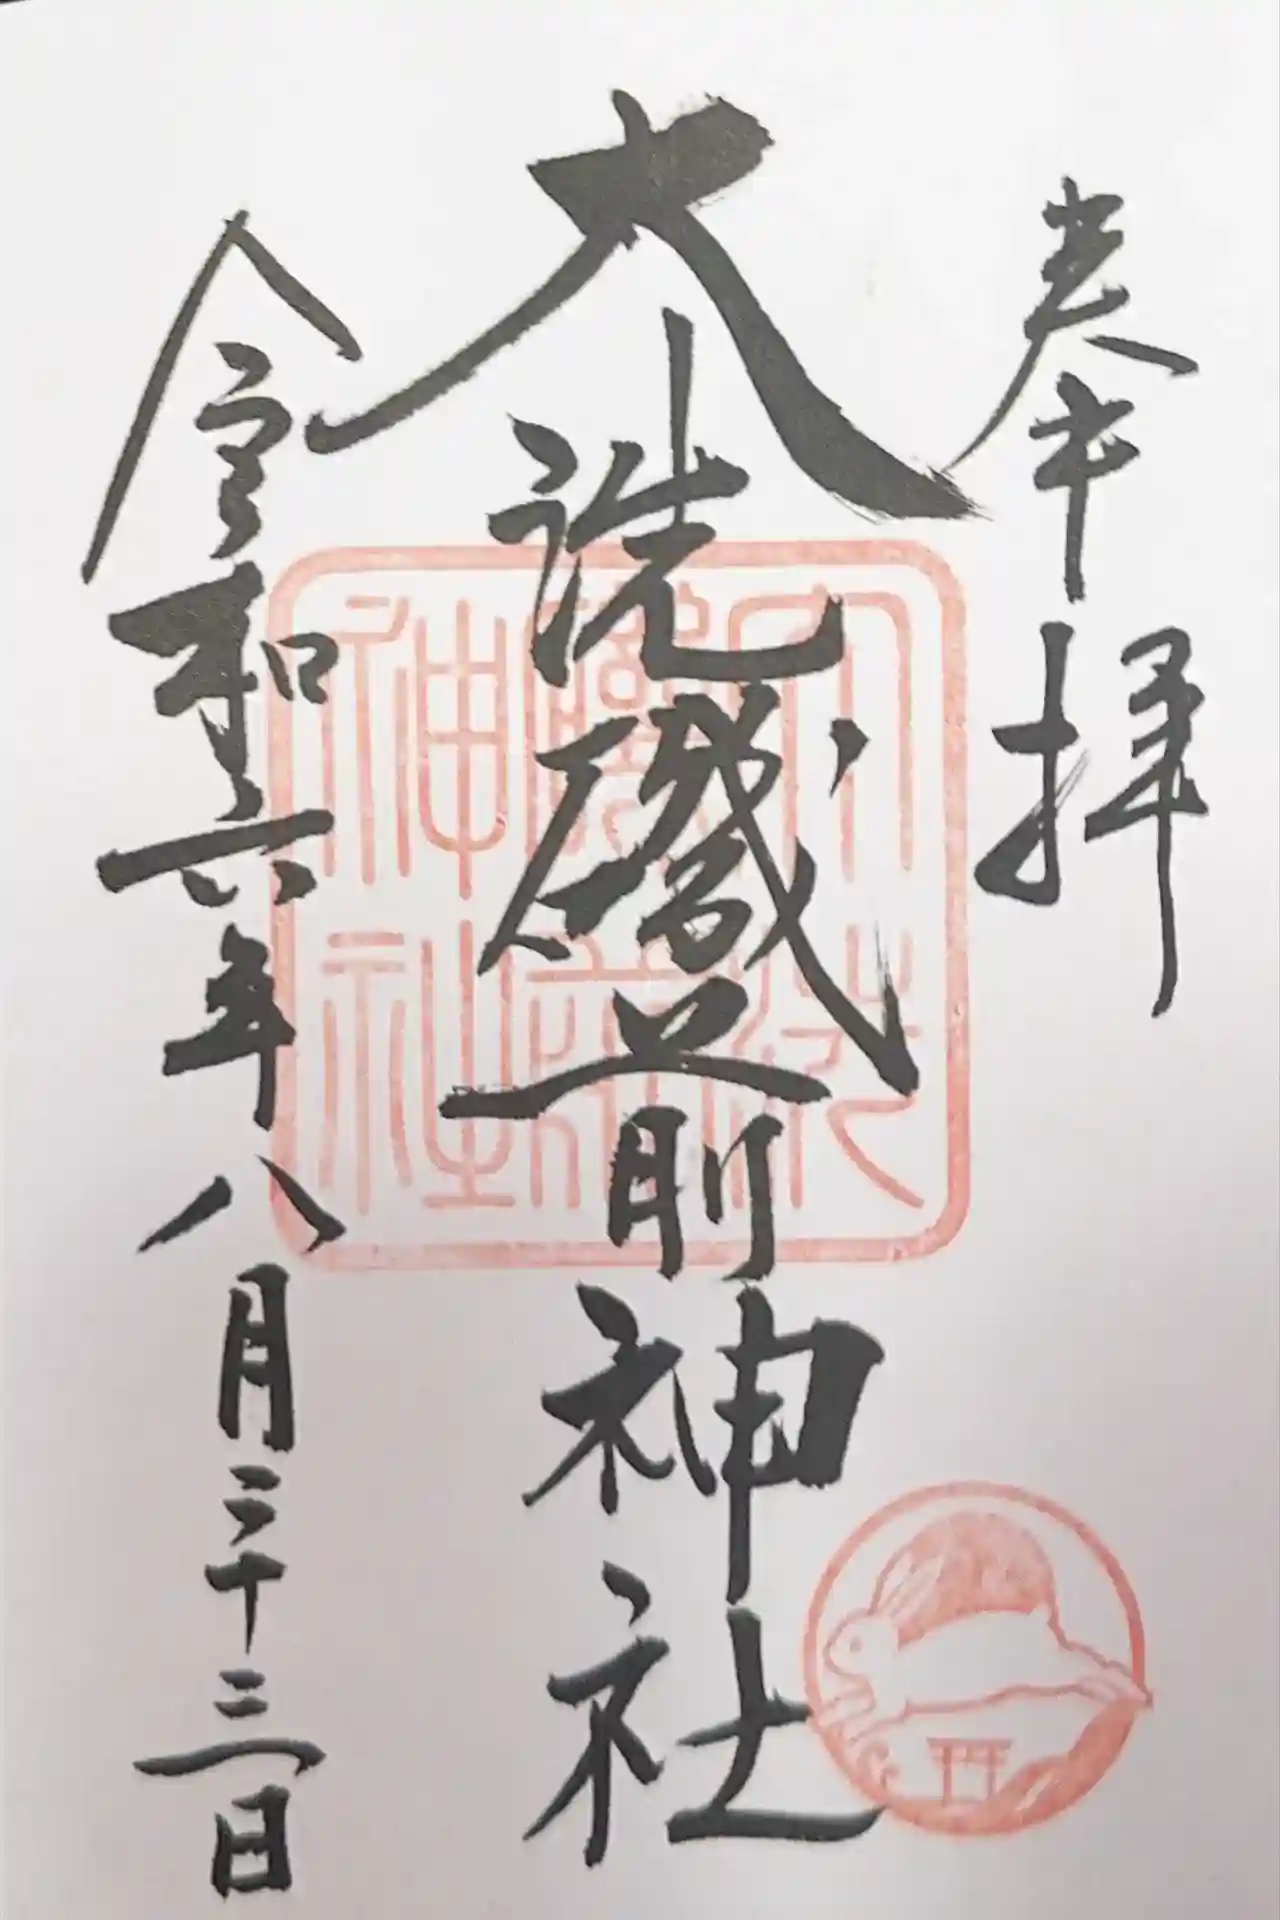 奉拝
大洗磯前神社
令和六年八月二十三日
大洗磯前神社